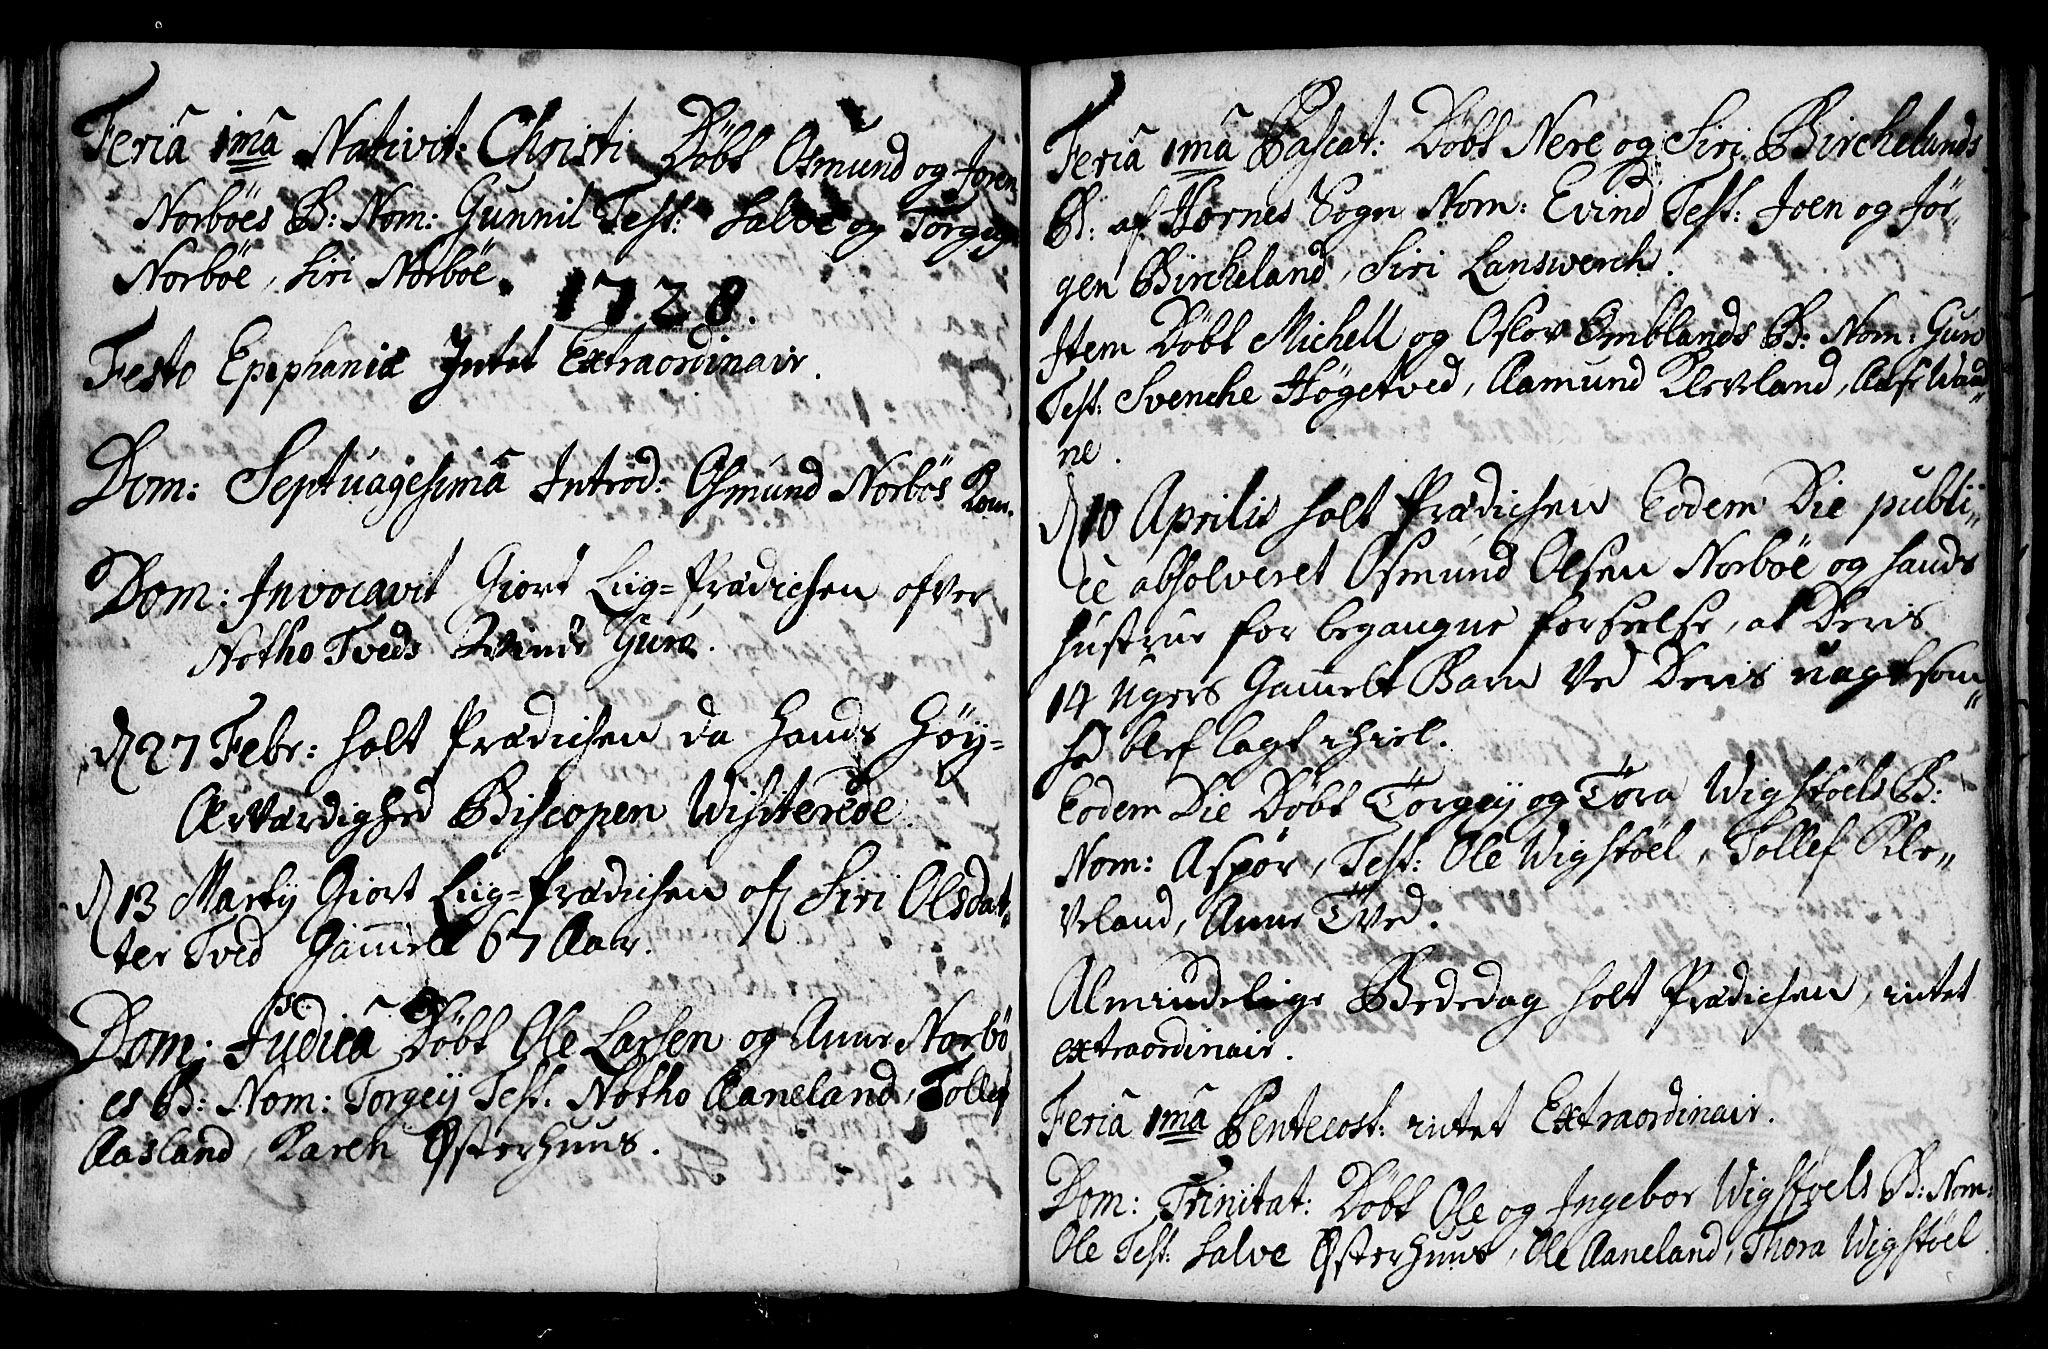 Feriâ 1mâ Nativit: Christi Döbt Osmund og Joren
Norböes B: Nom: Gunnil Test: Salve og Torgeys
Norböe, Siri Norböe.
1728.
Festo Epiphaniæ Intet Extraordinair.
Dom: Septuagesimâ Introd: Osmund Norbös Kone.
Dom: Invocavit Giort Liig-Prædichen ofver
Notho Tveds Qvinde Gurâ.
d 27 Febr: holt Prædichen da Hands Höy-
Ærværdighed Biscopen Wisiterede.
d 13 Martij Giort Liig-Prædichen of Siri Olsdat-
ter Tved Gam̄ell 67 Aar.
Dom: Judicâ Döbt Ole Larsen og Anne Norbö
es B: Nom: Torgeij Test. Notho Aaneland, Tollef
Aasland, Karen Østerhuus.
Feriâ 1mâ Pascat: Döbt Nere og Siri Birchelands
B: af Hornes Sogn Nom: Evind Test: Joen og Jör-
gen Bircheland, Siri Lanswerch.
Item Döbt Michell og Oslov Emblands B: Nom: Guro
Test: Svenche Högetved, Aamund Kleveland, Aase Waa-
ne.
d 10 Aprilis holt Prædichen Eodem Die publi-
ce absolveret Osmund Olsen Norböe og hands
hustrue for begangne forseelse, at Deris
14 Ugers Gam̄elt Barn Ved Deris uagtsom-
hed blef lagt ihiel.
Eodem Die Döbt Torgeij og Tora Wigstöels B:
Nom: Aspör, Test: Ole Wigstöel, Tollef Kle-
veland, Anne Tved.
Almindelige Bededag holt Prædichen, intet
extraordinair.
Feriâ 1mâ Pentecost: intet Extraordinair.
Dom: Trinitat: Döbt Ole og Ingebor Wigstoels B: Nom:
Ole Test: Salve Østerhuus, Ole Aaneland, Thora Wigstöel.